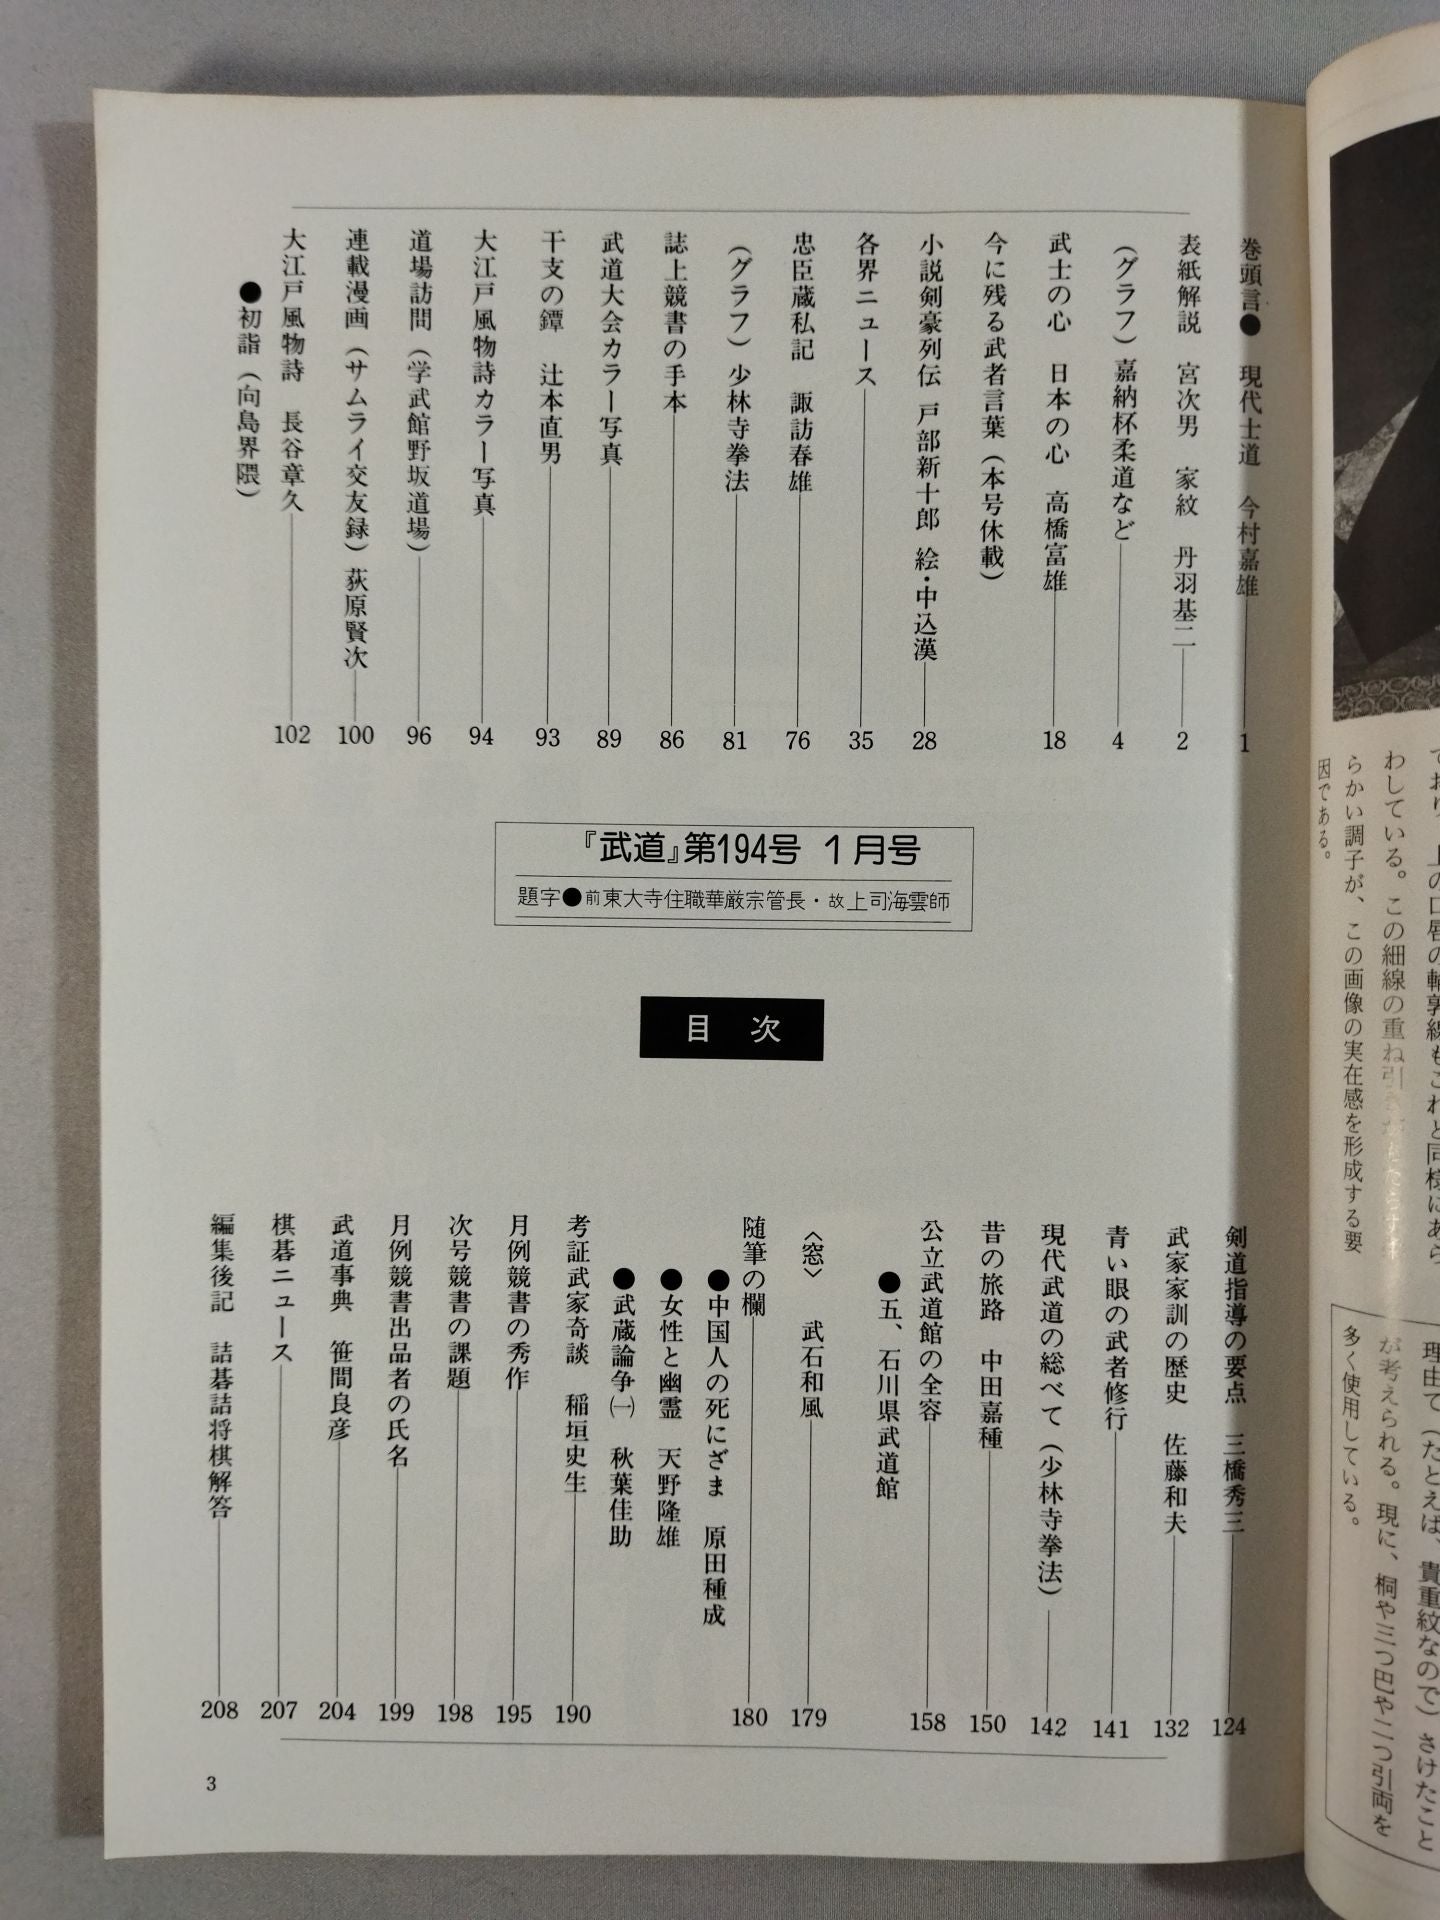 巻頭言● 現代士道 今村嘉雄 1
表紙解説 宮次男 家紋 丹羽基二 2
(グラフ) 嘉納杯柔道など 4
武士の心 日本の心 高橋富雄 18
今に残る武者言葉(本号休載)
小説剣豪列伝 戸部新十郎 絵・中込漢 28
各界ニュース 35
忠臣蔵私記 諏訪春雄 76
(グラフ) 少林寺拳法 81
誌上競書の手本 86
武道大会カラー写真 89
干支の鐔 辻本直男 93
大江戸風物詩カラー写真 94
道場訪問(学武館野坂道場) 96
連載漫画(サムライ交友録) 荻原賢次 100
大江戸風物詩 長谷章久 102
●初詣(向島界隈)
『武道』第194号 1月号
題字●前東大寺住職華厳宗管長・故上司海雲師
目次
剣道指導の要点 三橋秀三 124
武家家訓の歴史 佐藤和夫 132
青い眼の武者修行 141
現代武道の総べて(少林寺拳法) 142
昔の旅路 中田嘉種 150
公立武道館の全容 158
●五、石川県武道館
〈窓〉 武石和風 179
随筆の欄 180
●中国人の死にざま 原田種成
●女性と幽霊 天野隆雄
●武蔵論争㈠ 秋葉佳助
考証武家奇談 稲垣史生 190
月例競書の秀作 195
次号競書の課題 198
月例競書出品者の氏名 199
武道事典 笹間良彦 204
棋碁ニュース 207
編集後記 詰碁詰将棋解答 208
3
わしている。この細線の重ね引
らかい調子が、この画像の実在感を形成する要
因である。
理由で(たとえば、貴重紋なので)さけたこと
が考えられる。現に、桐や三つ巴や二つ引両を
多く使用している。